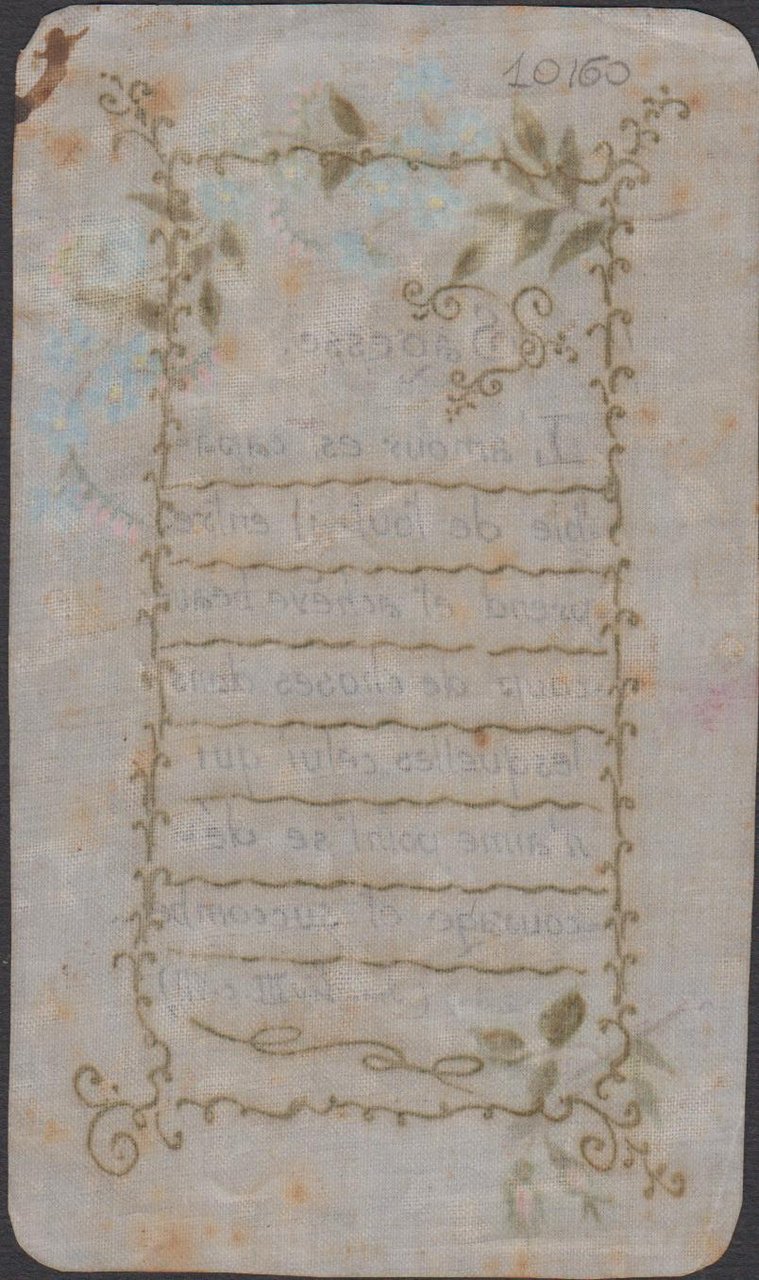 10160
L'amour est capa-
ble de tout, il entre
prend et achève beau
coup de choses dans
lesquelles celui qui
n'aime point se dé-
courage et succombe
L. III c.